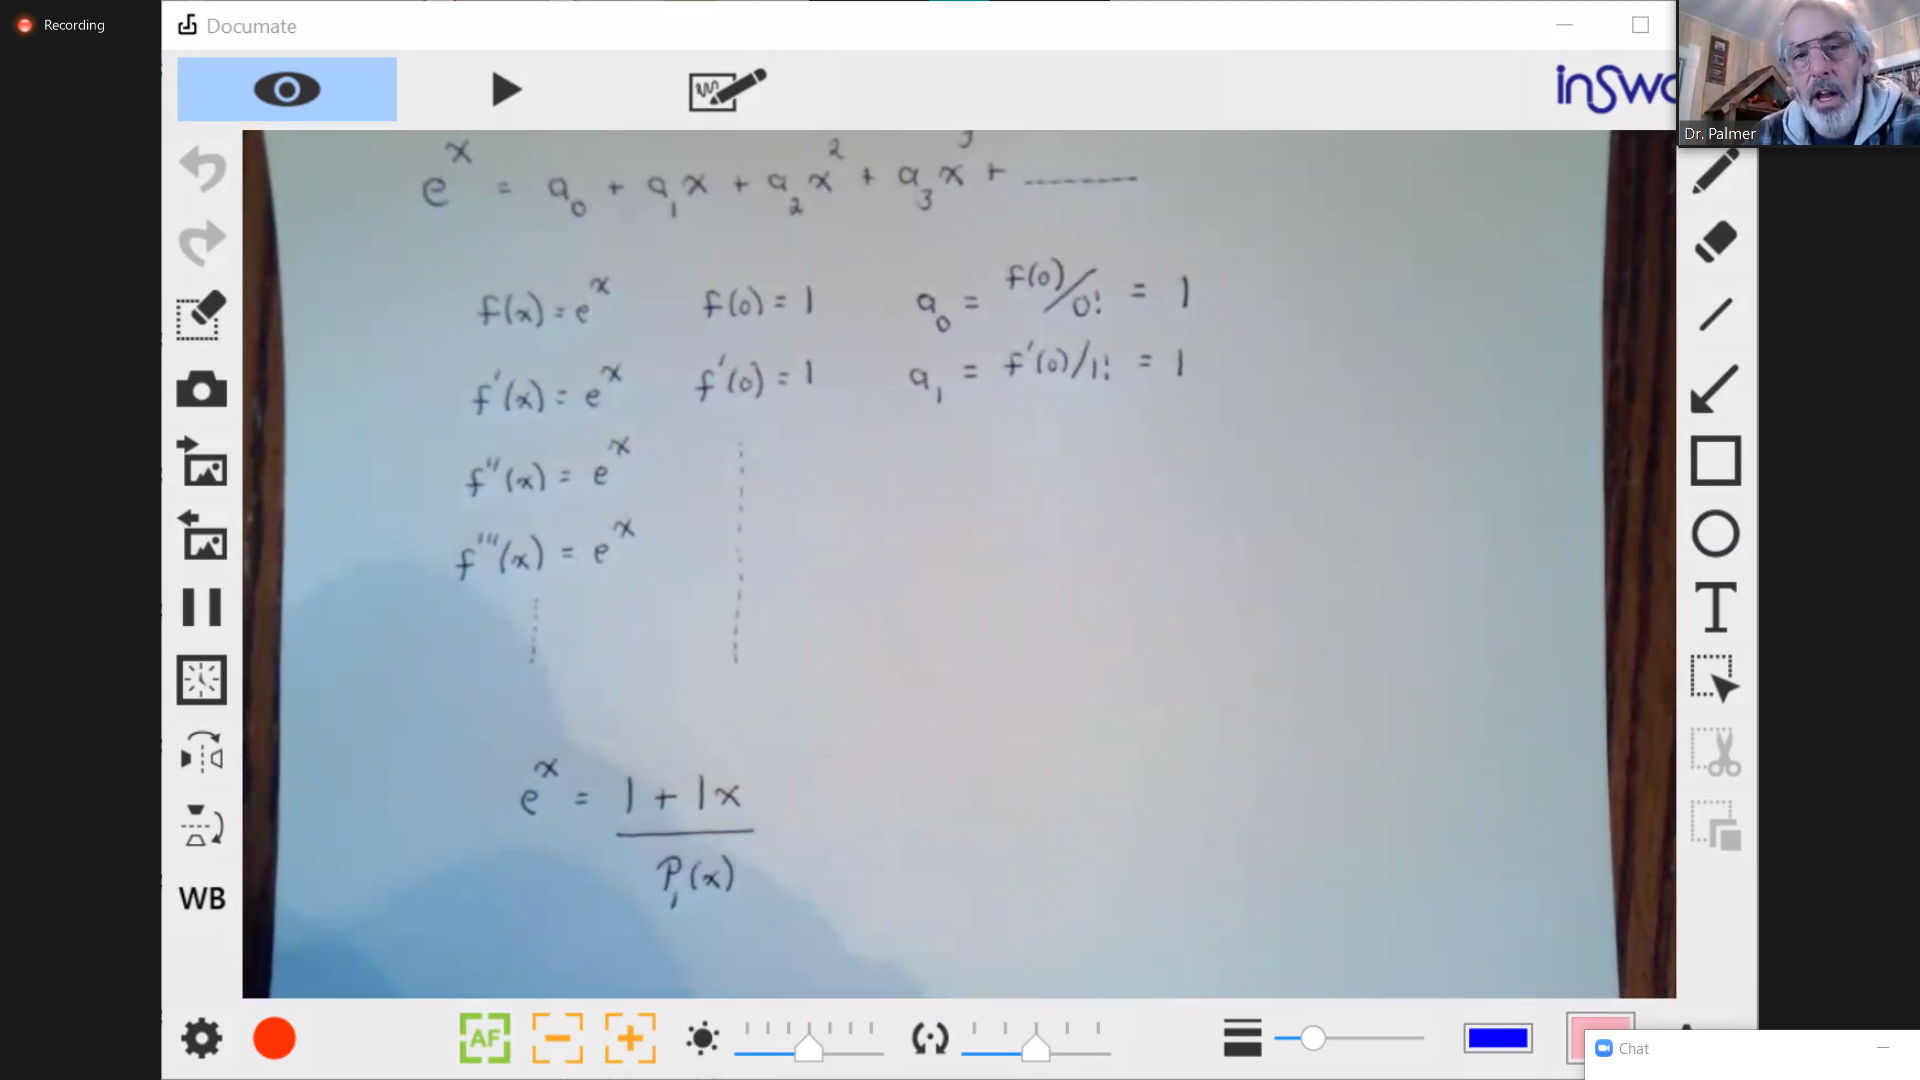 Recording
Documate
inSwo
Dr. Palmer
e^x = a_0 + a_1 x + a_2 x^2 + a_3 x^3 + ---------
f(x) = e^x f(0) = 1 a_0 = f(0)/0! = 1
f'(x) = e^x f'(0) = 1 a_1 = f'(0)/1! = 1
f''(x) = e^x
f'''(x) = e^x
e^x = 1 + 1x
P_1(x)
WB
T
AF
Chat